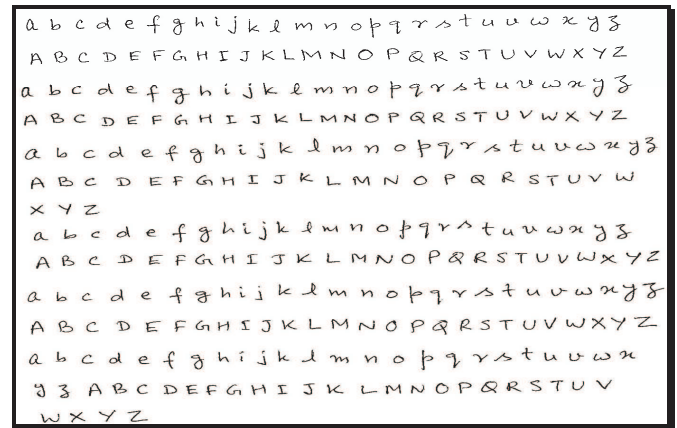 a b c d e f g h i j k l m n o p q r s t u v w x y z
A B C D E F G H I J K L M N O P Q R S T U V W X Y Z
a b c d e f g h i j k l m n o p q r s t u v w x y z
A B C D E F G H I J K L M N O P Q R S T U V W X Y Z
a b c d e f g h i j k l m n o p q r s t u v w x y z
A B C D E F G H I J K L M N O P Q R S T U V W
X Y Z
a b c d e f g h i j k l m n o p q r s t u v w x y z
A B C D E F G H I J K L M N O P Q R S T U V W X Y Z
a b c d e f g h i j k l m n o p q r s t u v w x y z
A B C D E F G H I J K L M N O P Q R S T U V W X Y Z
a b c d e f g h i j k l m n o p q r s t u v w x
y z A B C D E F G H I J K L M N O P Q R S T U V
W X Y Z